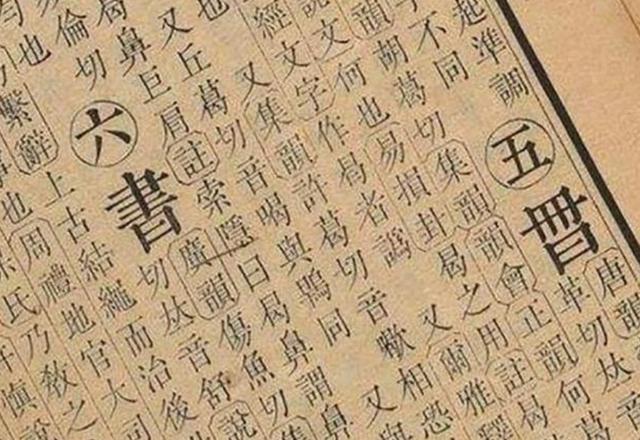 起準調
不同
五
曷
唐韻
革切𠀤
韻胡葛切集韻韻會正韻何葛
說文何也易損卦曷之用註曷
經文字作曷者譌 又爾雅釋
又集韻許葛切音歇相恐
也 又丘葛切音喝與鶡同 又與
曷鼻巨肩註索隱曰曷鼻謂鼻
倫切
六
書
廣韻傷魚切集
切𠀤音舒說
也
繫辭上古結繩而治後
也 周禮地官大司
氏乃教之
許慎說